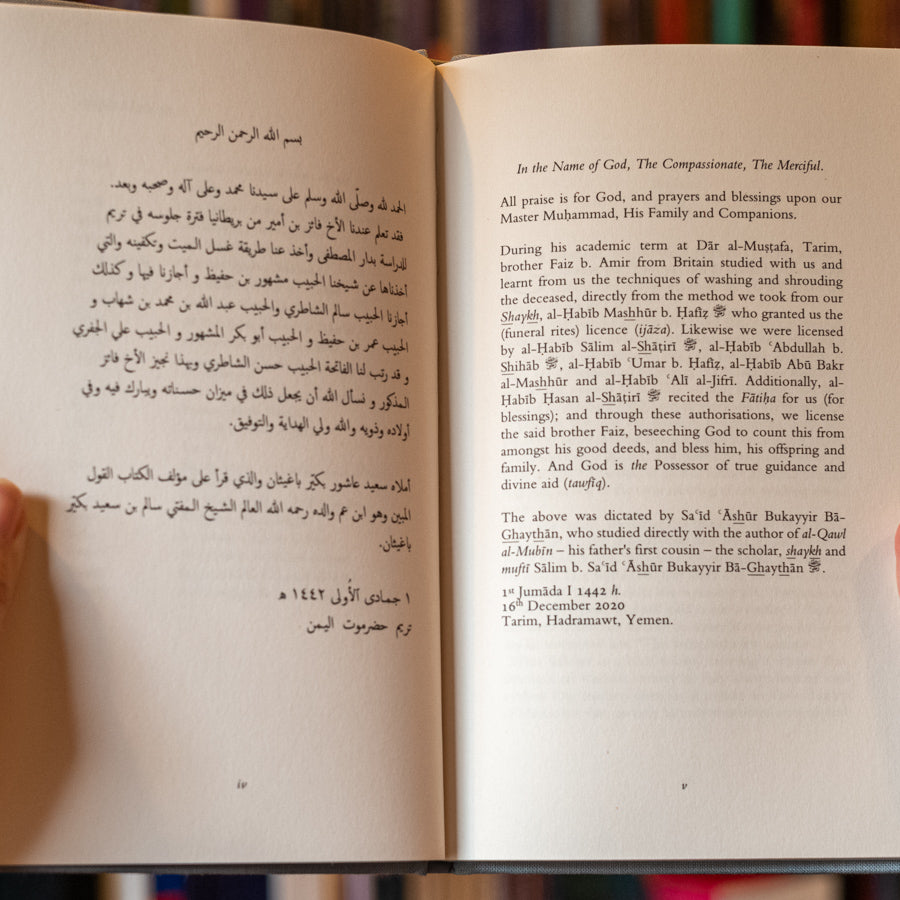 بسم الله الرحمن الرحيم
الحمد لله وصلّى الله وسلم على سيدنا محمد وعلى آله وصحبه وبعد.
فقد تعلم عندنا الأخ فائز بن أمير من بريطانيا فترة جلوسه في تريم
للدراسة بدار المصطفى وأخذ عنا طريقة غسل الميت وتكفينه والتي
أخذناها عن شيخنا الحبيب مشهور بن حفيظ و أجازنا فيها و كذلك
أجازنا الحبيب سالم الشاطري والحبيب عبد الله بن محمد بن شهاب و
الحبيب عمر بن حفيظ و الحبيب أبو بكر المشهور و الحبيب علي الجفري
و قد رتب لنا الفاتحة الحبيب حسن الشاطري وبهذا نجيز الأخ فائز
المذكور و نسأل الله أن يجعل ذلك في ميزان حسناته ويبارك فيه وفي
أولاده وذويه والله ولي الهداية والتوفيق.
أملاه سعيد عاشور بكيّر باغيثان والذي قرأ على مؤلف الكتاب القول
المبين وهو ابن عم والده رحمه الله العالم الشيخ المفتي سالم بن سعيد بكيّر
باغيثان.
١ جمادى الأولى ١٤٤٢ هـ
تريم حضرموت اليمن
iv
In the Name of God, The Compassionate, The Merciful.
All praise is for God, and prayers and blessings upon our
Master Muḥammad, His Family and Companions.
During his academic term at Dār al-Muṣṭafa, Tarim,
brother Faiz b. Amir from Britain studied with us and
learnt from us the techniques of washing and shrouding
the deceased, directly from the method we took from our
Shaykh, al-Ḥabīb Mashhūr b. Ḥafīẓ who granted us the
(funeral rites) licence (ijāza). Likewise we were licensed
by al-Ḥabīb Sālim al-Shāṭirī , al-Ḥabīb ʿAbdullah b.
Shihāb , al-Ḥabīb ʿUmar b. Ḥafīẓ, al-Ḥabīb Abū Bakr
al-Mashhūr and al-Ḥabīb ʿAlī al-Jifrī. Additionally, al-
Ḥabīb Ḥasan al-Shāṭirī recited the Fātiḥa for us (for
blessings); and through these authorisations, we license
the said brother Faiz, beseeching God to count this from
amongst his good deeds, and bless him, his offspring and
family. And God is the Possessor of true guidance and
divine aid (taufīq).
The above was dictated by Saʿīd ʿĀshūr Bukayyir Bā-
Ghaythān, who studied directly with the author of al-Qawl
al-Mubīn – his father's first cousin – the scholar, shaykh and
muftī Sālim b. Saʿīd ʿĀshūr Bukayyir Bā-Ghaythān .
1st Jumāda I 1442 h.
16th December 2020
Tarim, Hadramawt, Yemen.
v